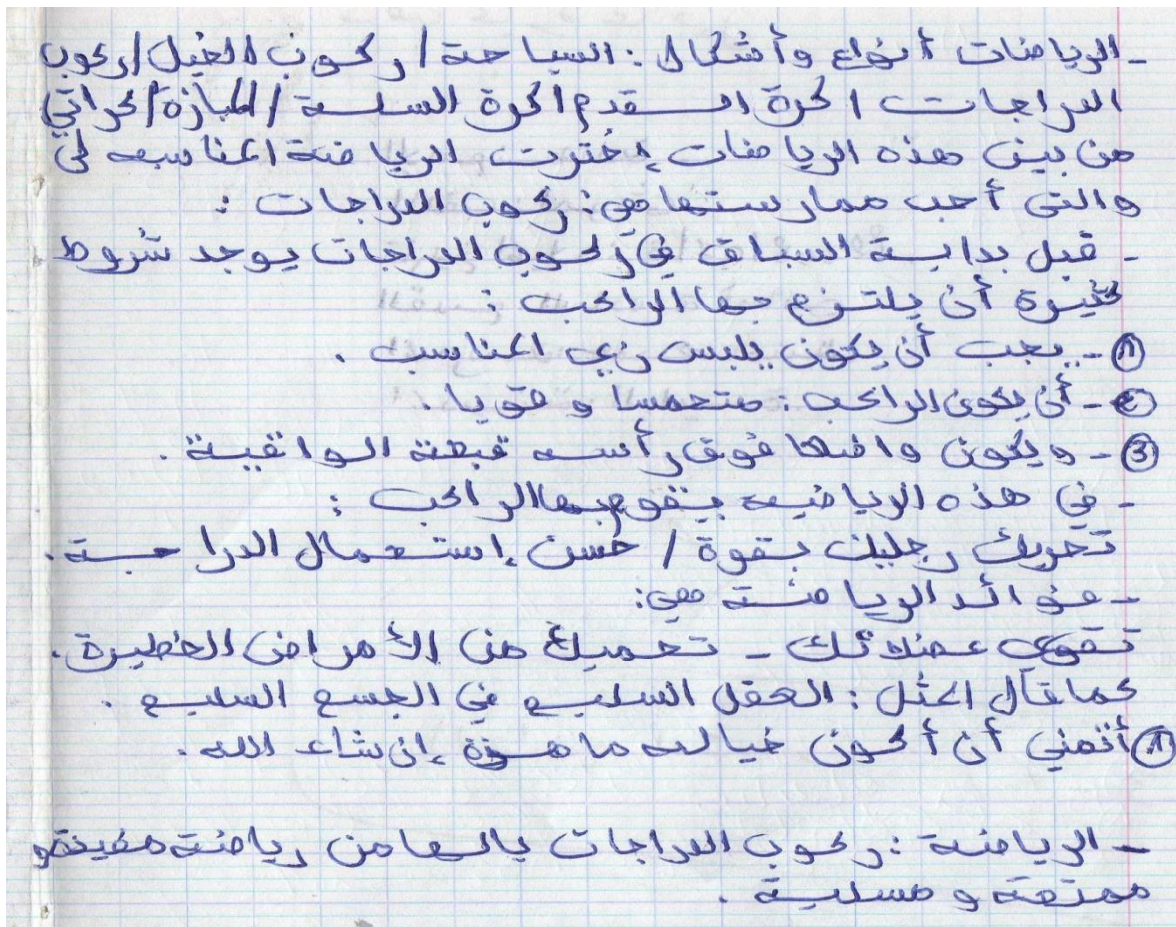 - الرياضات أنواع وأشكال : السباحة / ركوب الخيل / ركوب
الدراجات / كرة القدم / كرة السلة / المبارزة / كراتي
من بين هذه الرياضات إخترت الرياضة المناسبة لي
والتي أحب ممارستها هي : ركوب الدراجات :
- قبل بداية السباق في ركوب الدراجات يوجد شروط
كثيرة أن يلتزم بها الراكب :
① - يجب أن يكون يلبس زي المناسب .
② - أن يكون الراكب : متحمسا و قويا .
③ - ويكون واضعا فوق رأسه قبعة الواقية .
- في هذه الرياضية يقوم بها الراكب :
تحريك رجليك بقوة / حسن إستعمال الدراجة .
- فوائد الرياضة هي :
تقوي عضلاتك - تحميك من الأمراض الخطيرة .
كما قال المثل : العقل السليم في الجسم السليم .
① أتمني أن أكون خيالة ماهرة إن شاء الله .
- الرياضة : ركوب الدراجات يالها من رياضة مفيدة و
ممتعة و مسلية .